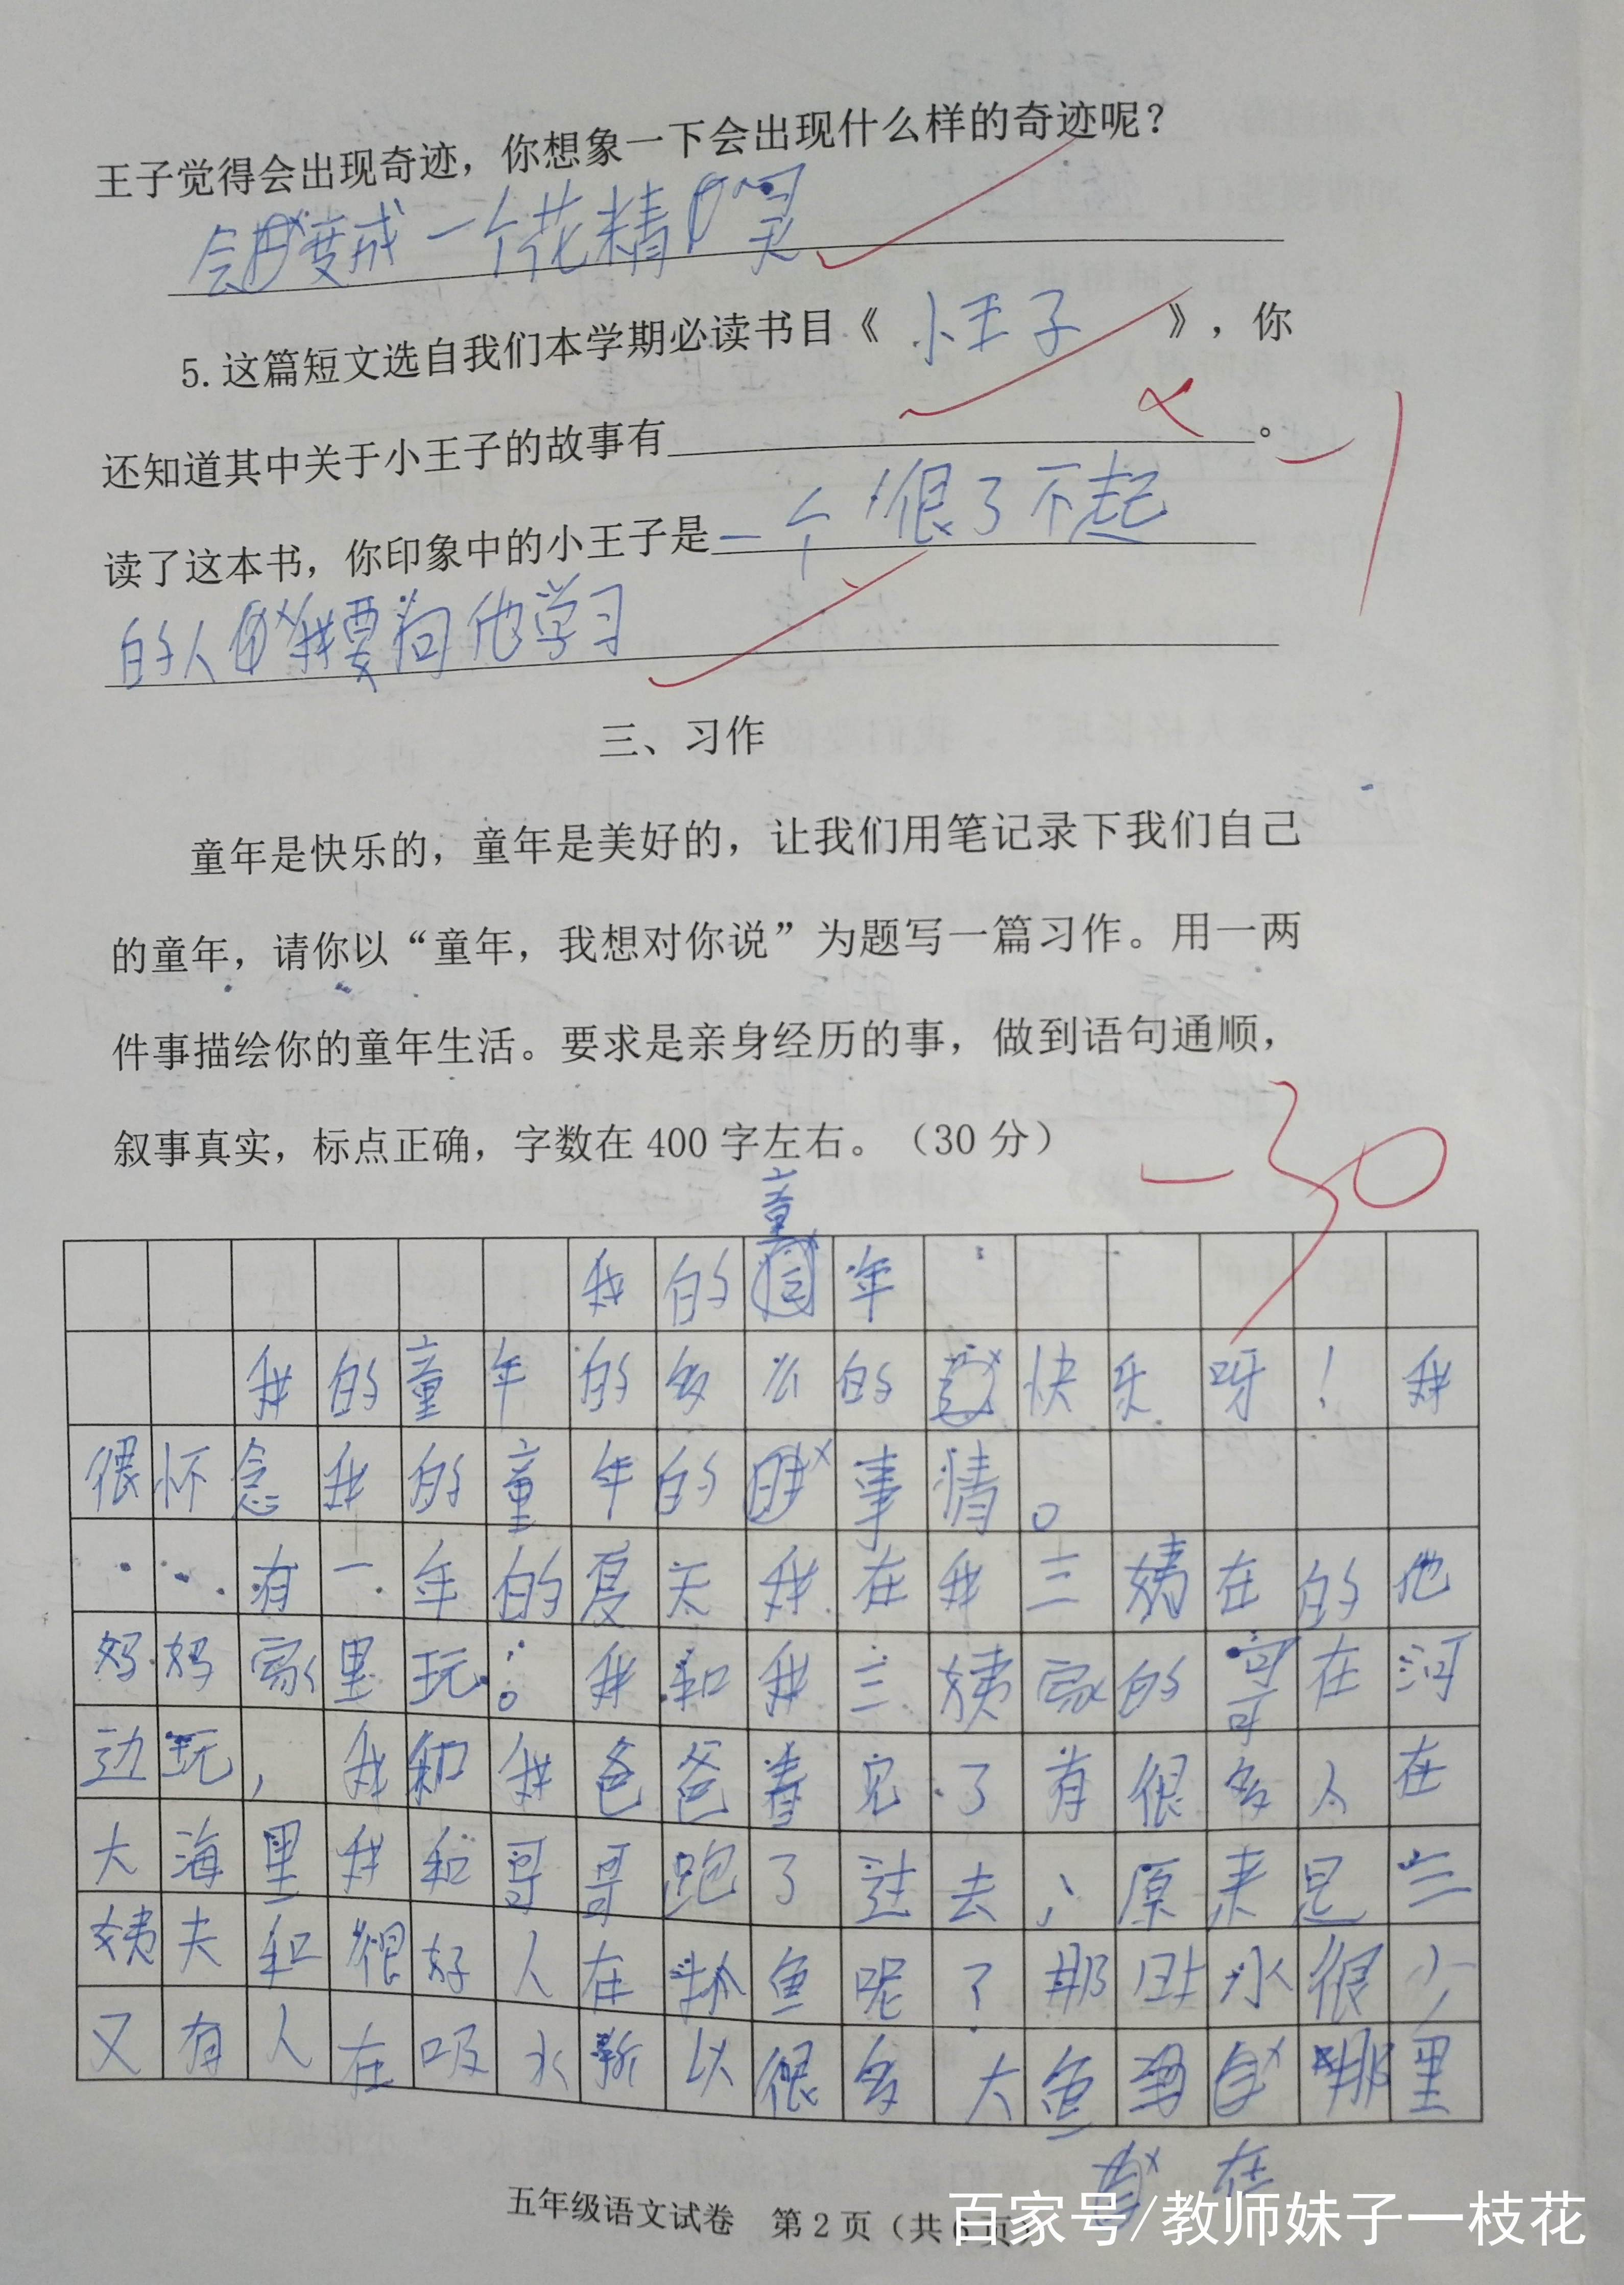 王子觉得会出现奇迹，你想象一下会出现什么样的奇迹呢？
会变成一个花精灵
5.这篇短文选自我们本学期必读书目《小王子》，你
还知道其中关于小王子的故事有。
读了这本书，你印象中的小王子是一个很了不起
的人我要向他学习
三、习作
童年是快乐的，童年是美好的，让我们用笔记录下我们自己
的童年，请你以“童年，我想对你说”为题写一篇习作。用一两
件事描绘你的童年生活。要求是亲身经历的事，做到语句通顺，
叙事真实，标点正确，字数在400字左右。（30分）
-30
童
我的年
我的童年的多么的快乐呀！我
很怀念我的童年的事情。
有一年的夏天我在我三姨在的他
妈妈家里玩。我和我三姨家的哥在河
边玩，我和我爸爸看见了有很多人在
大海里我和哥哥跑了过去，原来是三
姨夫和很好人在抓鱼呢了那水很少
又有人在吸水所以很多大鱼那里
在
五年级语文试卷 第2页（共6页）
百家号/教师妹子一枝花